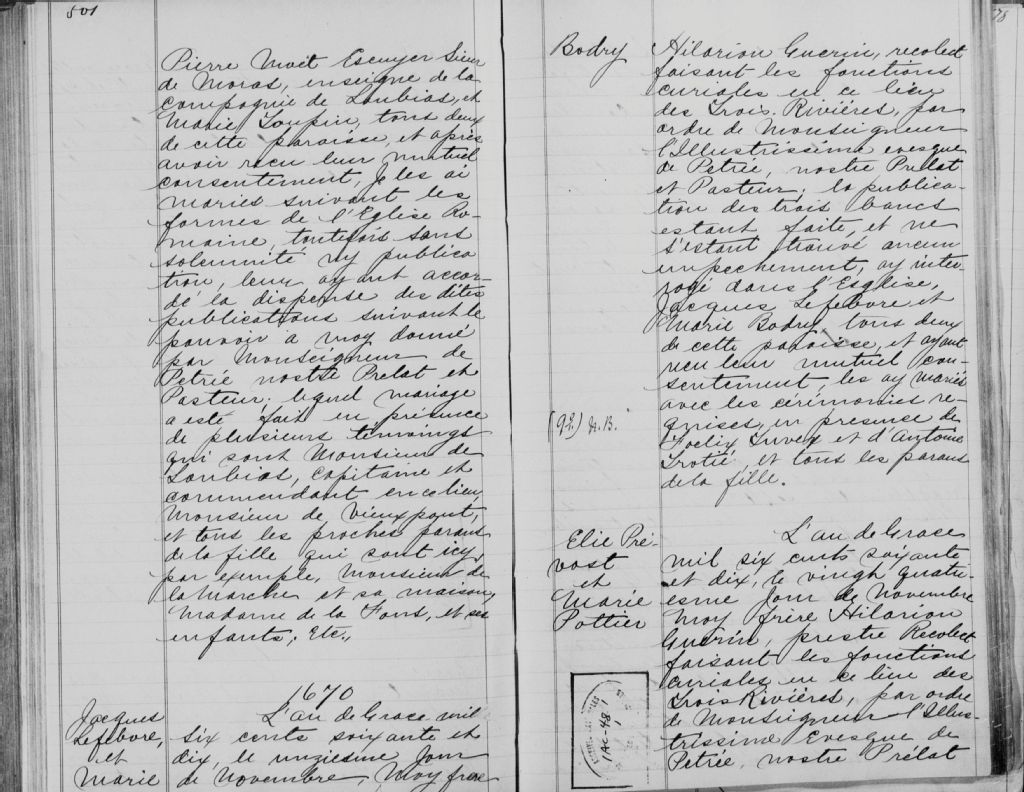 501
Pierre Moët Escuyer Sieur
de Moras, enseigne de la
compagnie de Loubias, et
Marie Toupin, tous deux
de cette paroisse, et après
avoir recu leur mutuel
consentement, Je les ai
mariés suivant les
formes de l'Eglise Ro-
maine, toutefois sans
solemnité ny publica
tion, leur ayant accor-
dé la dispense des dites
publications suivant le
pouvoir à moy donné
par Monseigneur de
Petrée nostre Prelat et
Pasteur; lequel mariage
a esté fait en présence
de plusieurs témoings
qui sont Monsieur de
Loubias, capitaine et
commendant en ce lieu,
Monsieur de Vieuxpont,
et tous les proches parans
de la fille qui sont icy,
par exemple, Monsieur de
la Marche et sa maison,
Madame de la Fons, et ses
enfants, Etc.,
1670
Jacques
Lefebvre,
et
Marie
L'an de Grace mil
six cents soixante et
dix, le unziesme Jour
de Novembre, Moy frere
78
Bodry
Hilarion Guerin, recolect
faisant les fonctions
curiales en ce lieu
des Trois-Rivières, par
ordre de Monseigneur
l'Illustrissime evesque
de Petrée, nostre Prélat
et Pasteur; la publica-
tion des trois bancs
estant faite, et ne
s'estant trouvé aucun
empechement, ay inter-
rogé dans l'Esglise,
Jacques Lefebvre et
Marie Bodry, tous deux
de cette paroisse, et ayant
receu leur mutuel con-
sentement, les ay mariés
avec les cérémonies re-
quises, en presence de
et d'Antoine
Trotié, et tous les parans
de la fille.
N.B.
Elie Pré-
vost
et
Marie
Pottier
L'an de Grace
mil six cents soixante
et dix, le vingh quatri-
esme Jour de Novembre
Moy frère Hilarion
Guerin, prestre Recolect
faisant les fonctions
curiales en ce lieu des
Trois Rivières, par ordre
de Monseigneur l'Illus-
trissime Evesque de
Petrée, nostre Prélat